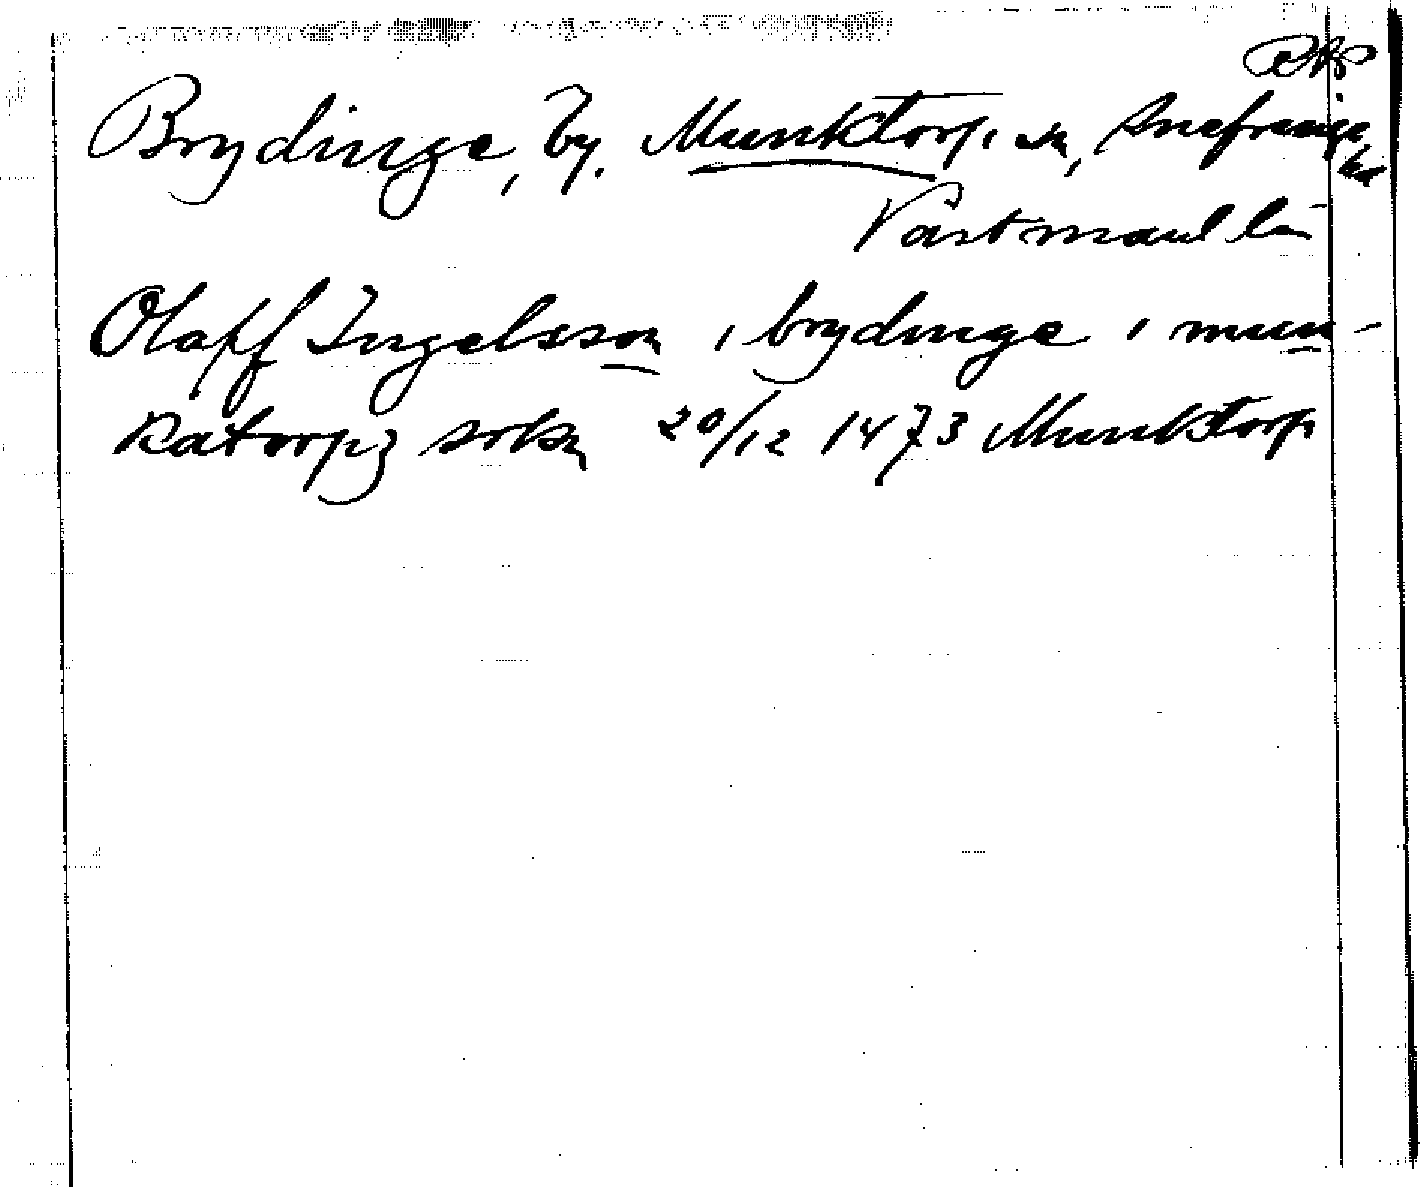 Brydinge, by. Munktorp sn, Snefringe hd
Västmanl län
Olaff Ingelsson i brydinge i mun-
katorpz sokn 20/12 1473 Munktorp